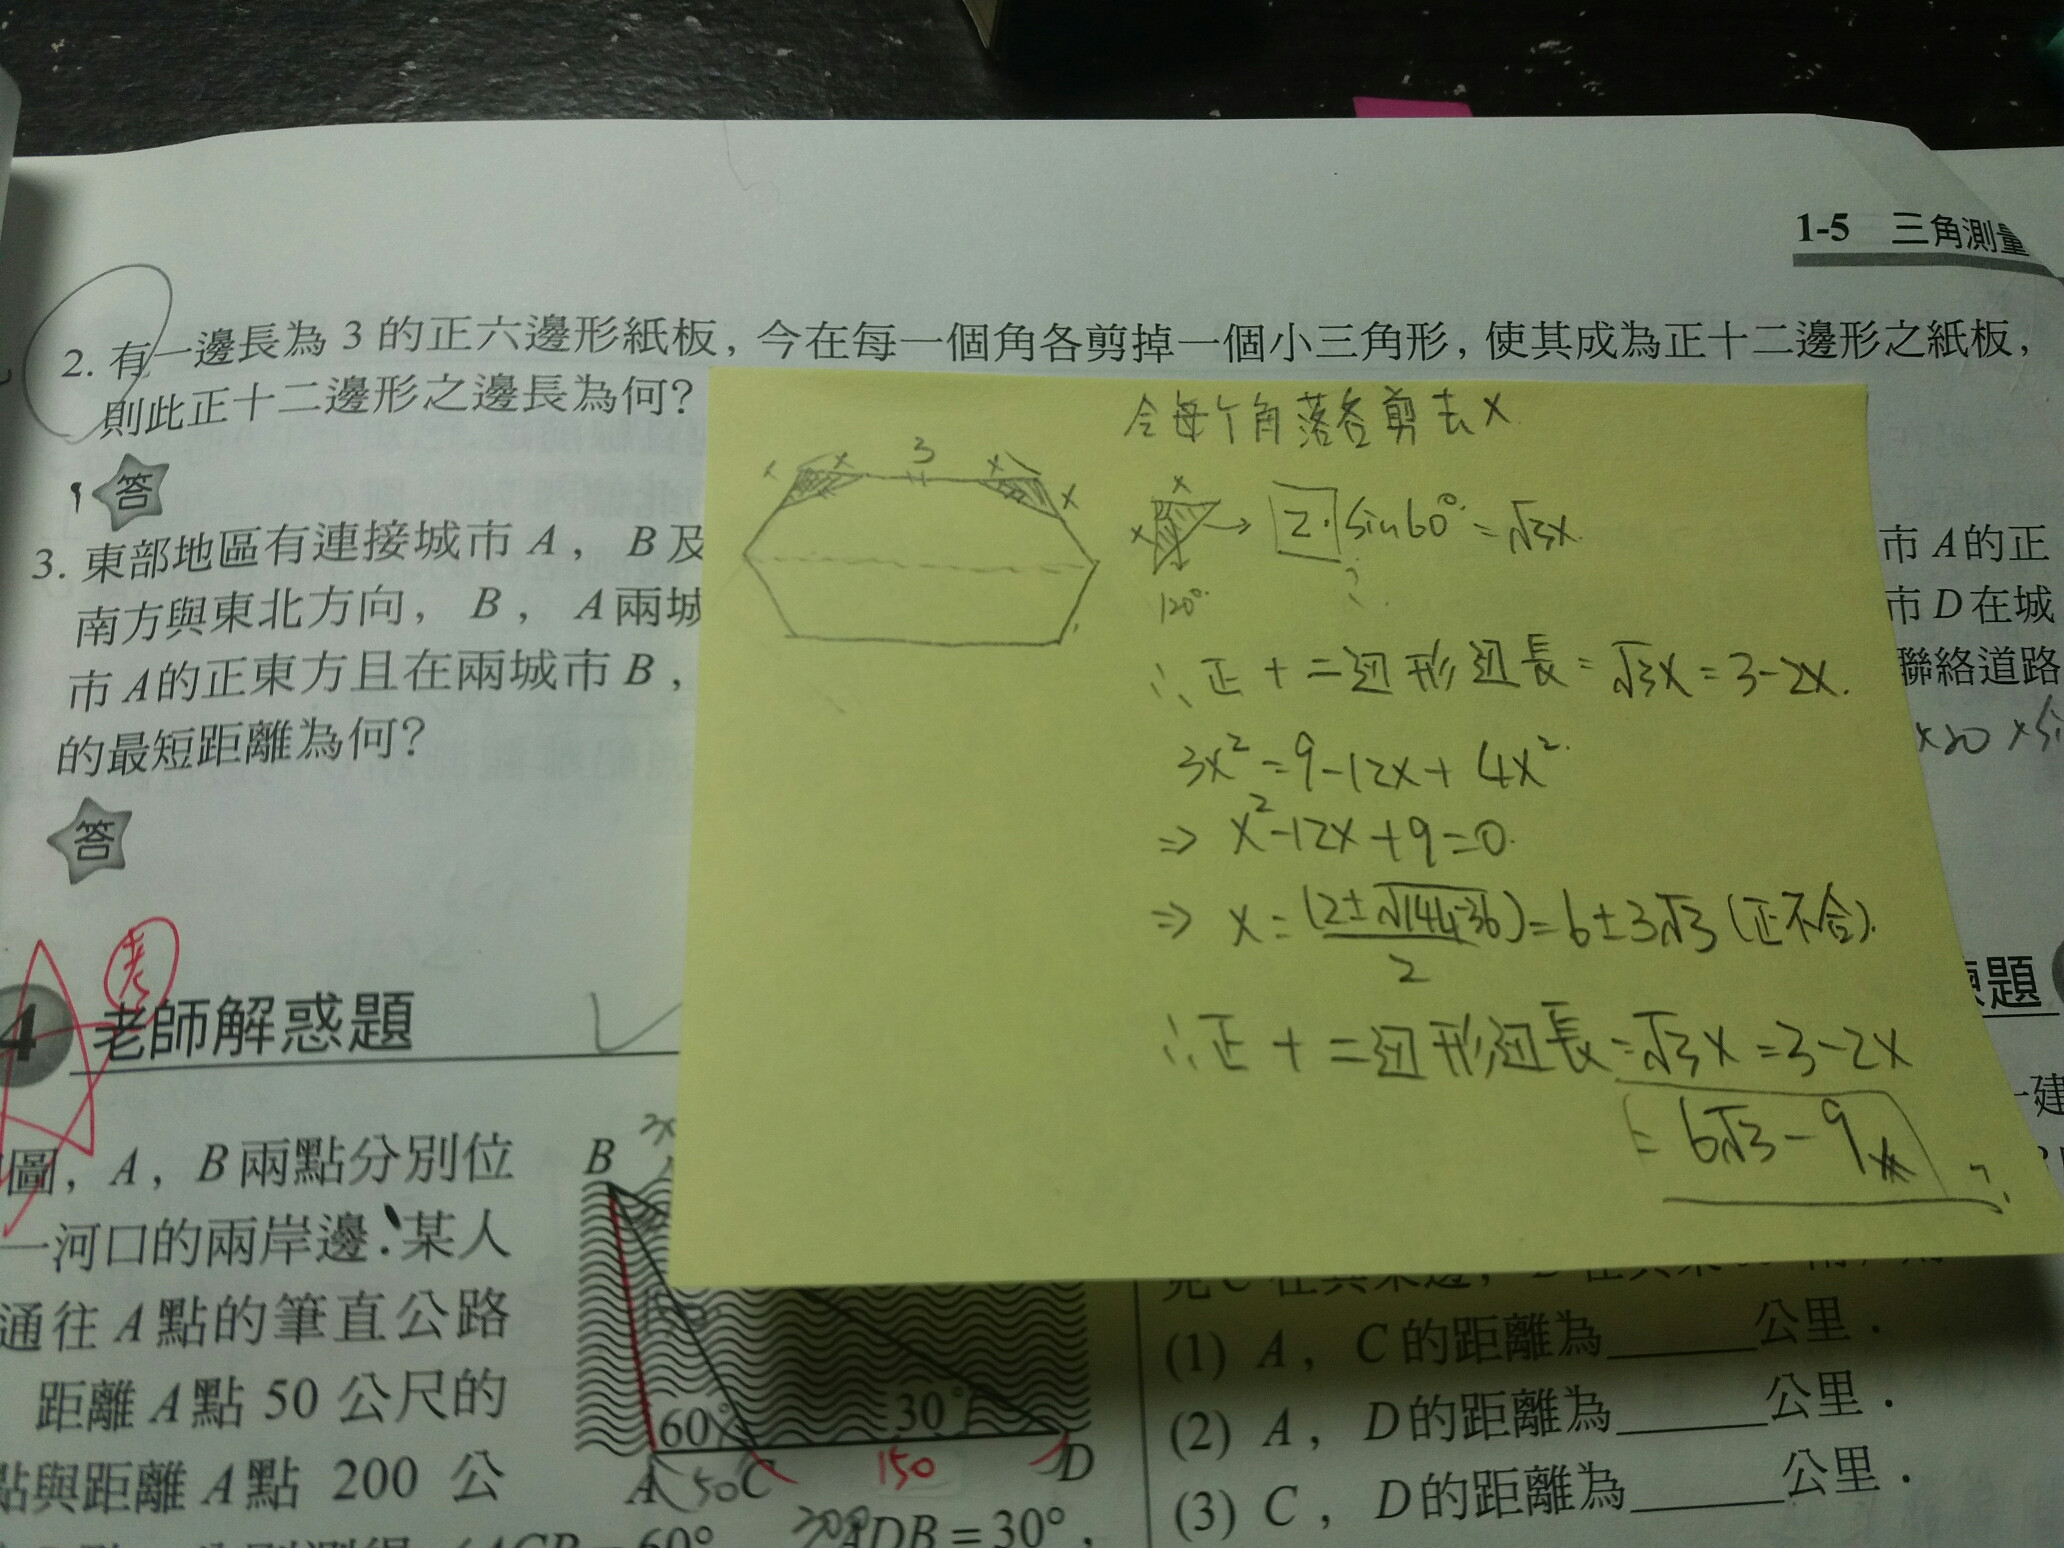 1-5 三角測量
2. 有一邊長為 3 的正六邊形紙板, 今在每一個角各剪掉一個小三角形, 使其成為正十二邊形之紙板,
則此正十二邊形之邊長為何?
答
3. 東部地區有連接城市 A, B及
南方與東北方向, B, A兩城
市A的正東方且在兩城市B,
的最短距離為何?
答
令每个角落各剪去x
x x 3 x x
x
x → 2·sin60° = √3x
120° ?
∴正十二边形边長=√3x=3-2x.
3x²=9-12x+4x²
⇒ x²-12x+9=0.
⇒ x=(12±√144-36)/2=6±3√3(正不合).
∴正十二边形边長=√3x=3-2x
=6√3-9
?
市A的正
市D在城
聯絡道路
×20×
考
4 老師解惑題
圖, A, B兩點分別位
一河口的兩岸邊.某人
通往A點的筆直公路
距離A點 50 公尺的
點與距離A點 200 公
B
60° 30°
A 50 C 150 D
ADB=30°,
練題
一建
(1) A, C的距離為______公里.
(2) A, D的距離為______公里.
(3) C, D的距離為______公里.